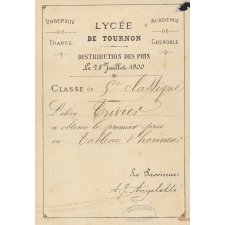 UNIVERSITÉ
DE
FRANCE.
LYCÉE
DE TOURNON
ACADÉMIE
DE
GRENOBLE
DISTRIBUTION DES PRIX
Le 28 Juillet 1900
CLASSE de 5e Classique
L'élève Trévier
a obtenu le premier prix
au tableau d'honneur
Le Proviseur